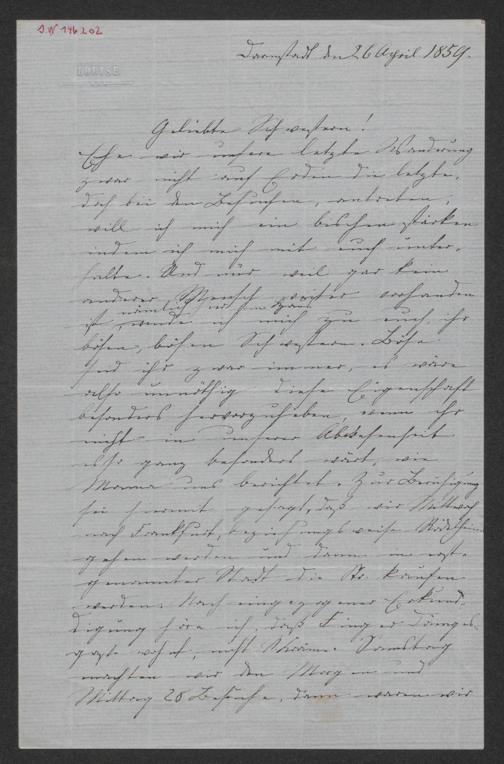 S.N 146202
Darmstadt den 26 April 1859.
Geliebte Schwestern!
Ehe wir unsere letzte Wanderung
zwar nicht auf Erden die letzte,
doch bei den Besuchen, antreten,
will ich mich ein bischen stärken
indem ich mich mit euch unter-
halte. Und nur weil gar kein
anderer Mensch weiter vorhanden
ist, wende ich mich zu euch, ihr
bösen, bösen Schwestern. Böse
seid ihr zwar immer, es wäre
also unnöthig diese Eigenschaft
besonders hervorzuheben, wenn ihr
nicht in unserer Abwesenheit
so ganz besonders wärt, wie
Mama uns berichtet. Zur Beruhigung
sei hiermit gesagt, daß wir Mittwoch
nach Frankfurt, beziehungsweise Rödelheim
gehen werden und dann in erst-
genannter Stadt die kaufen
werden. Nach eingezogener Erkund-
digung höre ich, daß
wohnt, nicht Samstag
machten wir den Morgen und
Mittag 28 Besuche, dann waren wir